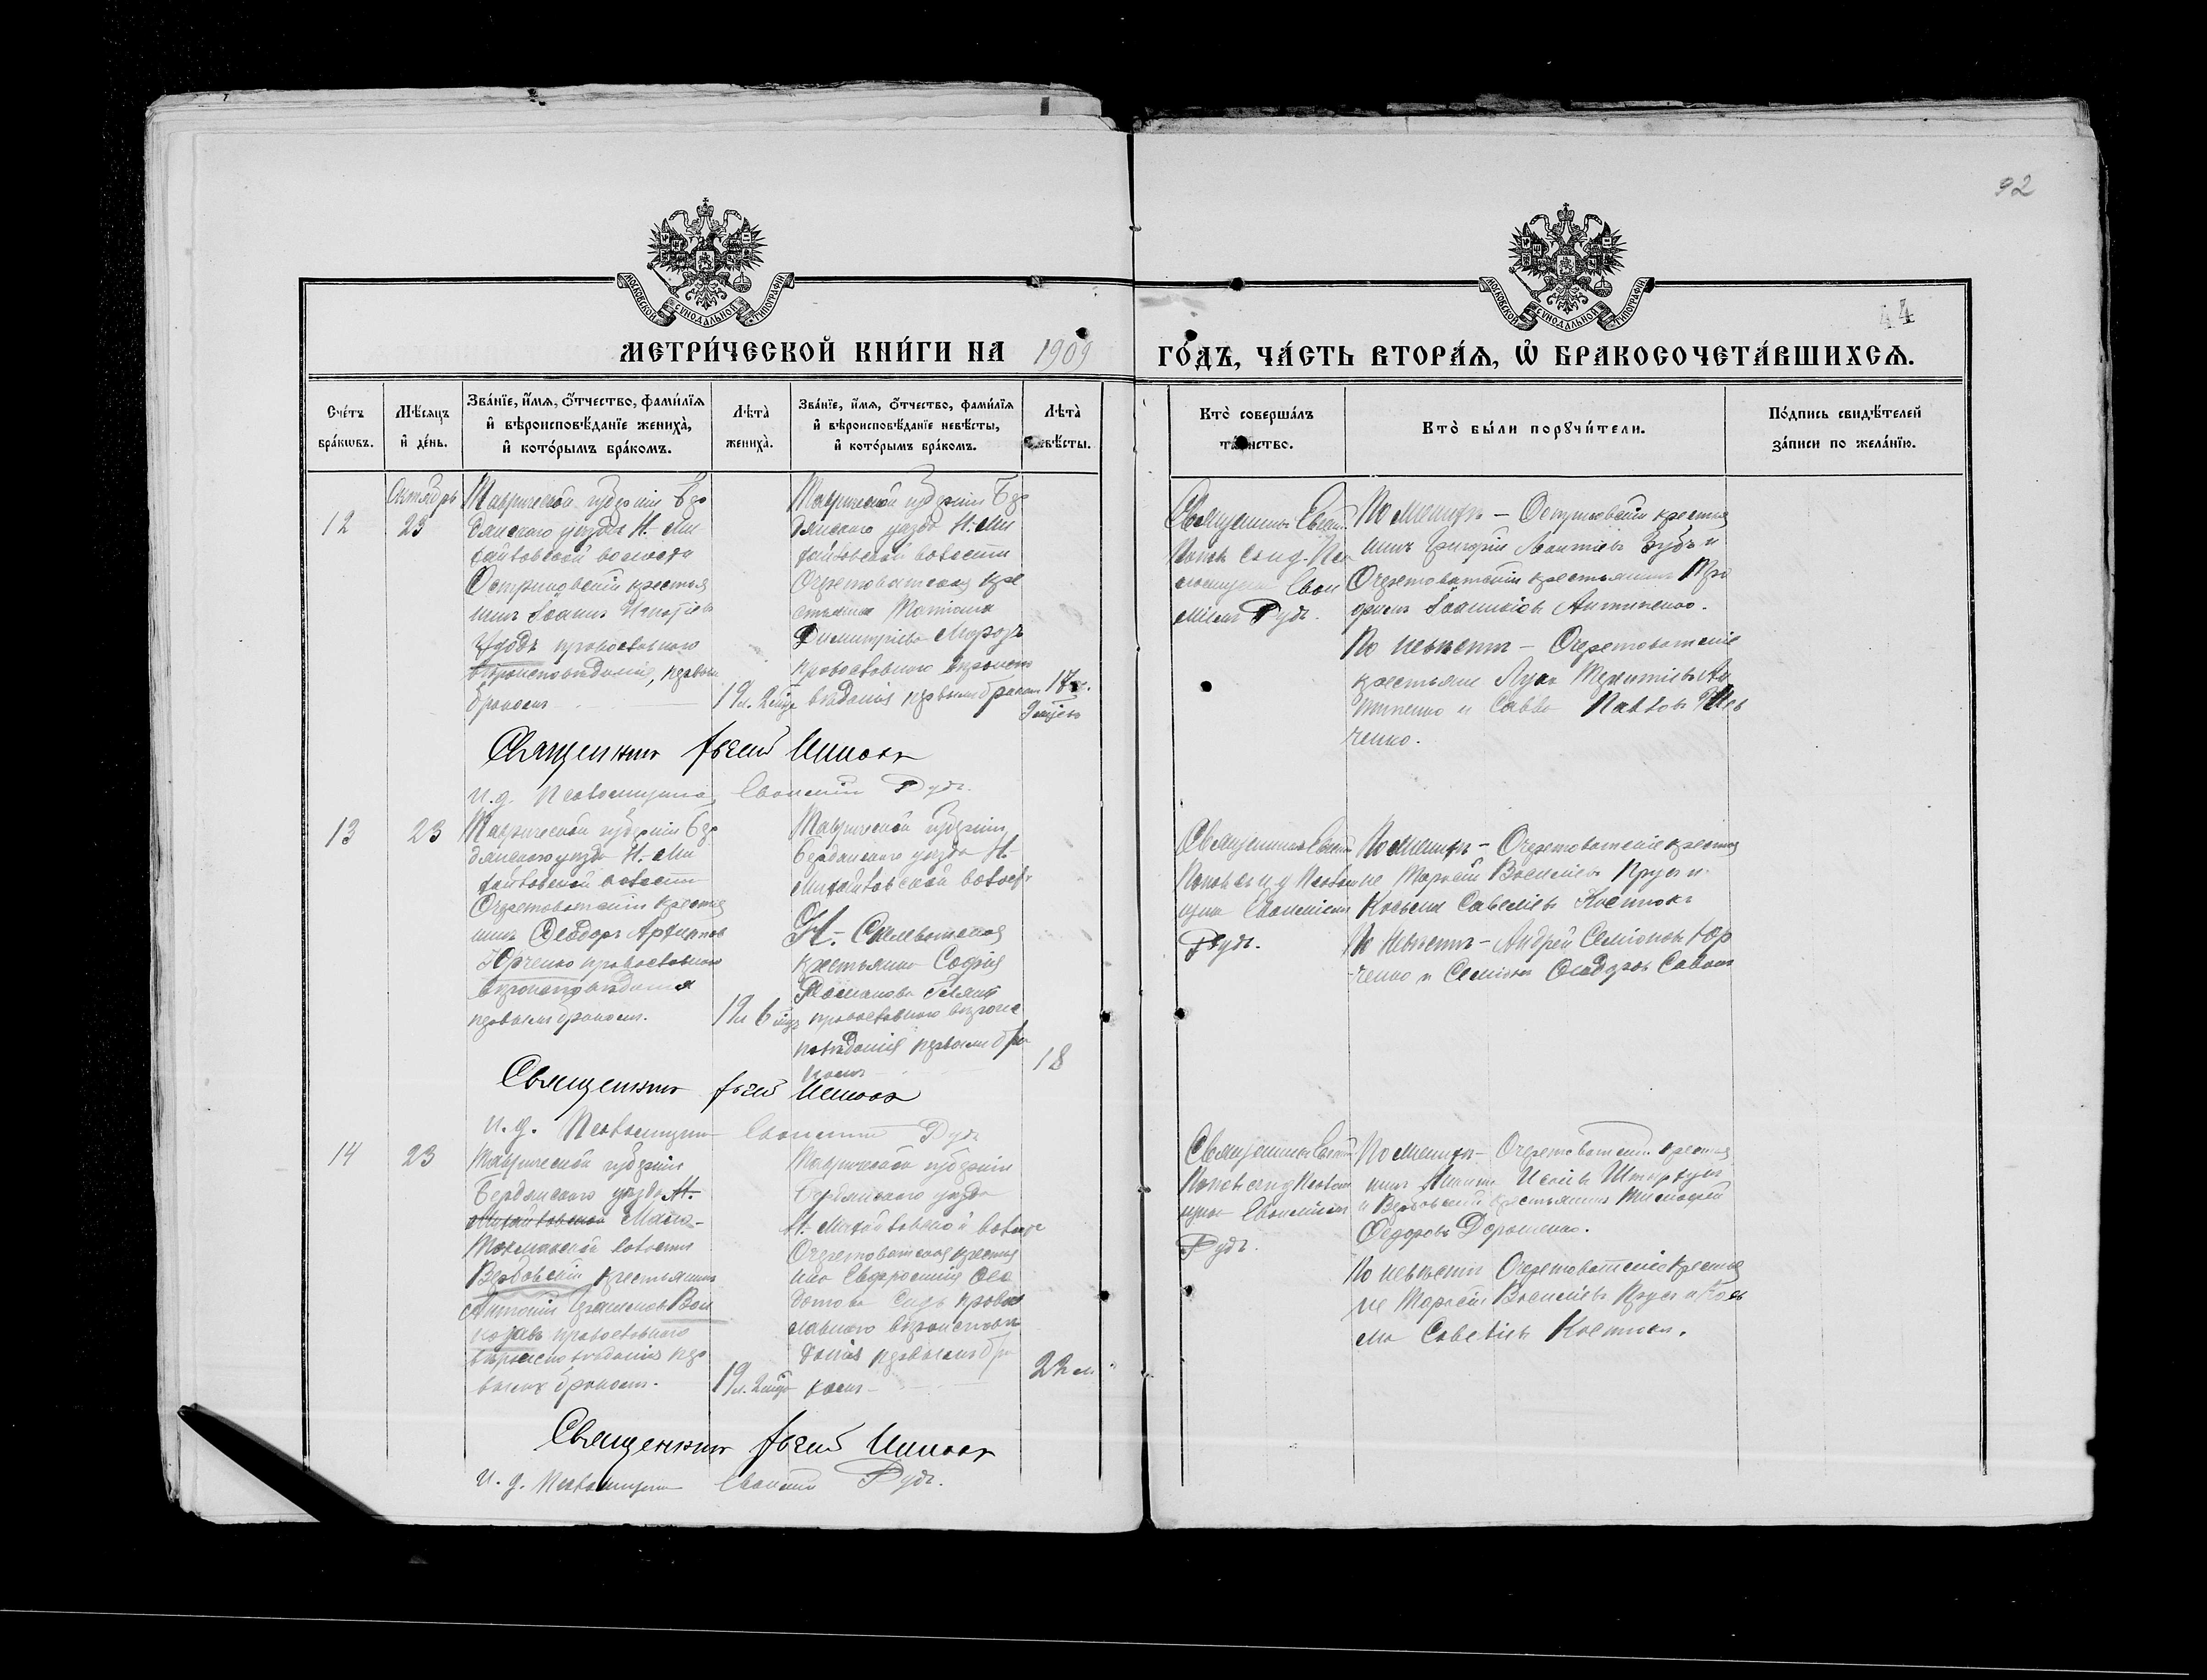 92
МОСКОВСКОЙ СѴНОДАЛЬНОЙ ТИПОГРАФІИ
МОСКОВСКОЙ СѴНОДАЛЬНОЙ ТИПОГРАФІИ
44
МЕТРИ́ЧЕСКОЙ КНИ́ГИ НА 1909 ГО́ДЪ, ЧА́СТЬ ВТОРА́Ѧ, Ѽ БРАКОСОЧЕТА́ВШИХСѦ.
Сче́тъ бра́кѡвъ.
Мѣ́сяцъ и҆ де́нь.
Зва́нїе, и҆́мѧ, ѻ҆́тчество, фами́лїѧ и҆ вѣроисповѣ́данїе жениха̀, и҆ кото́рымъ бра́комъ.
Лѣта̀ жениха̀.
Зва́нїе, и҆́мѧ, ѻ҆́тчество, фами́лїѧ и҆ вѣроисповѣ́данїе невѣ́сты, и҆ кото́рымъ бра́комъ.
Лѣта̀ невѣ́сты.
Кто̀ соверша́лъ та́инство.
Кто̀ бы́ли порꙋчи́тели.
По́дпись свидѣ́телей за́писи по жела́нїю.
12
Октябрь
23
Таврической губерніи Бер
дянскаго уѣзда Н.-Ми
хайловской волости
Остриковскій крестья
нинъ Іоаннъ Игнатіевъ
православнаго
вѣроисповѣданія, первым
бракомъ
19 л. 2 мѣс
Таврической губерніи Бер
дянскаго уѣзда Н.-Ми
хайловской волости
Очеретоватская кре
стьянка Татіана
Димитріева Морозъ
православнаго вѣроиспо
вѣданія первымъ бракомъ
17 л.
9 мѣсяц
Священникъ Евген.
Поповъ съ и. д. Пса
ломщика Евѳи
міемъ Рудъ.
По женихѣ - Остриковскій крестья
нинъ Григорій Леонтіевъ Зубъ и
Очеретоватскій крестьянинъ Тро
фимъ Іоанникіевъ Антипенко.
По невѣстѣ - Очеретоватскіе
крестьяне Лука Терентіевъ Ан
типенко и Савва Павловъ Шев
ченко.
Священникъ
и. д. Псаломщика Евѳимій Рудъ.
13
23
Таврической губерніи Бер
дянскаго уѣзда Н.-Ми
хайловской волости
Очеретоватскій крестья
нинъ Ѳеодоръ Архиповъ
Юрченко православнаго
вѣроисповѣданія
первымъ бракомъ.
19 л 6 мѣс
Таврической губерніи
Бердянскаго уѣзда Н.-
Михайловской волост
крестьянка Софія
православнаго вѣроис
повѣданія первымъ бра
комъ
18
Священникъ Евген
Поповъ съ и д Псалом
щика Евѳиміемъ
Рудъ.
По женихѣ - Очеретоватскіе крестья
не Тарасій Василіевъ Прусъ и
Косьма Савеліевъ Костюкъ
По невѣстѣ - Андрей Семіоновъ Юр
ченко и Семіонъ Ѳеодоровъ
Священникъ
и. д. Псаломщика Евѳимій Рудъ
14
23
Таврической губерніи
Бердянскаго уѣзда Н.-
Михайловской Мало-
Токмакской волости
Вербовскій крестьянинъ
Антоній
православнаго
вѣроисповѣданія пер
вымъ бракомъ.
19 л. 2 мѣс
Таврической губерніи
Бердянскаго уѣзда
Н.-Михайловской волост
Очеретоватская крестья
нка Евфросинія Ѳео
дотова православ
славнаго вѣроисповѣ
данія первымъ бра
комъ
22 л
Священникъ Евгеній
Поповъ съ и д Псалом
щика Евѳиміемъ
Рудъ.
По женихѣ - Очеретоватскій крестья
нинъ
и Вербовскій крестьянинъ Тимофей
Ѳедоровъ Дорошенко.
По невѣстѣ Очеретоватскіе крестья
не Тарасій Василіевъ Прусъ и Кось
ма Савеліевъ Костюкъ.
Священникъ
и. д. Псаломщика Евѳимій Рудъ.